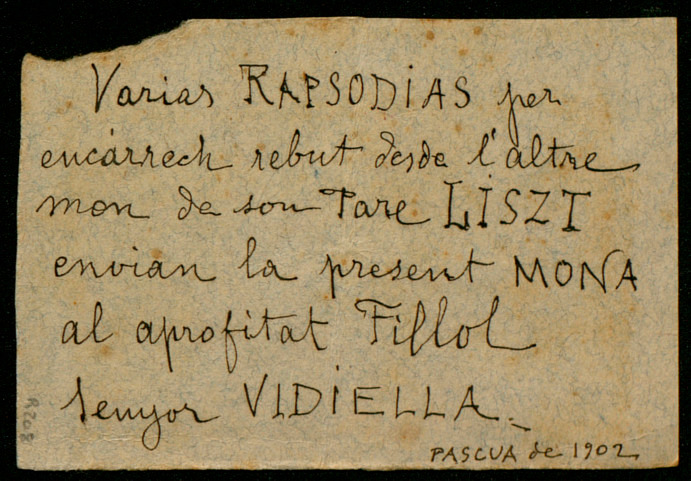 Varias RAPSODIAS per
encárrech rebut desde l'altre
mon de son Pare LISZT
envian la present MONA
al aprofitat Fillol
Senyor VIDIELLA.
PASCUA de 1902